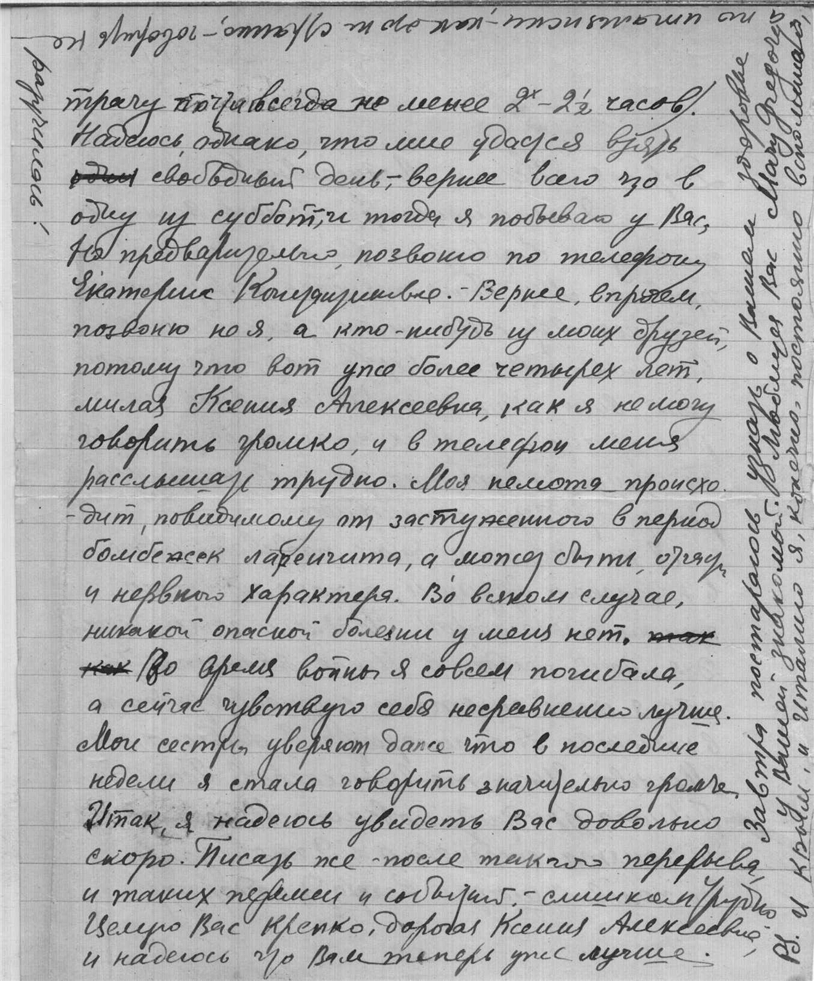 трачу почти всегда не менее 2х – 2½ часов).
Надеюсь, однако, что мне удастся взять
один свободный день, – вернее всего что в
одну из суббот, и тогда я побываю у Вас,
Но предварительно, позвоню по телефону
Екатерине Кондратьевне. – Вернее, впрочем,
позвоню не я, а кто-нибудь из моих друзей,
потому что вот уже более четырех лет,
милая Ксения Алексеевна, как я не могу
говорить громко, и в телефон меня
расслышать трудно. Моя немота происхо
-дит, повидимому от застуженного в период
бомбежек ларенгита, а может быть, отчасти
и нервного характера. Во всяком случае,
никакой опасной болезни у меня нет. так
как Во время войны я совсем погибала,
а сейчас чувствую себя несравненно лучше.
Мои сестры уверяют даже что в последние
недели я стала говорить значительно громче.
Итак, я надеюсь увидеть Вас довольно
скоро. Писать же – после такого перерыва,
и таких перемен и событий, – слишком трудно
Целую Вас крепко, дорогая Ксения Алексеевна,
и надеюсь что Вам теперь уже лучше.
Завтра постараюсь узнать о Вашем здоровье
у Вашей знакомой. Любящая Вас
P.S. И Крым, и Италию я, конечно, постоянно вспоминаю,
но итальянски – как это ни странно, – говорить не
разучилась!